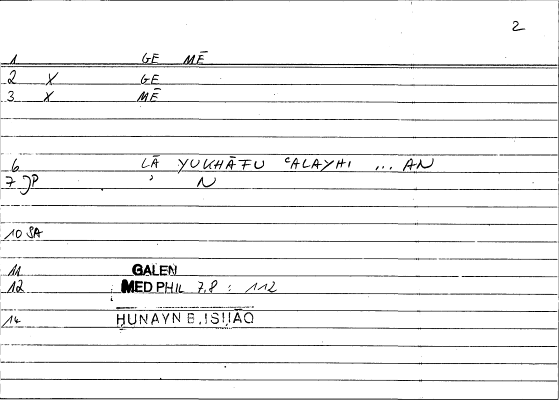 2
1 GE MĒ
2 X GE
3 X MĒ
6 LĀ YUKHĀFU ʿALAYHI ... AN
7 JP N
10 SA
11 GALEN
12 MED PHIL 7,8 : 112
14 ḤUNAYN B. ISḤĀQ